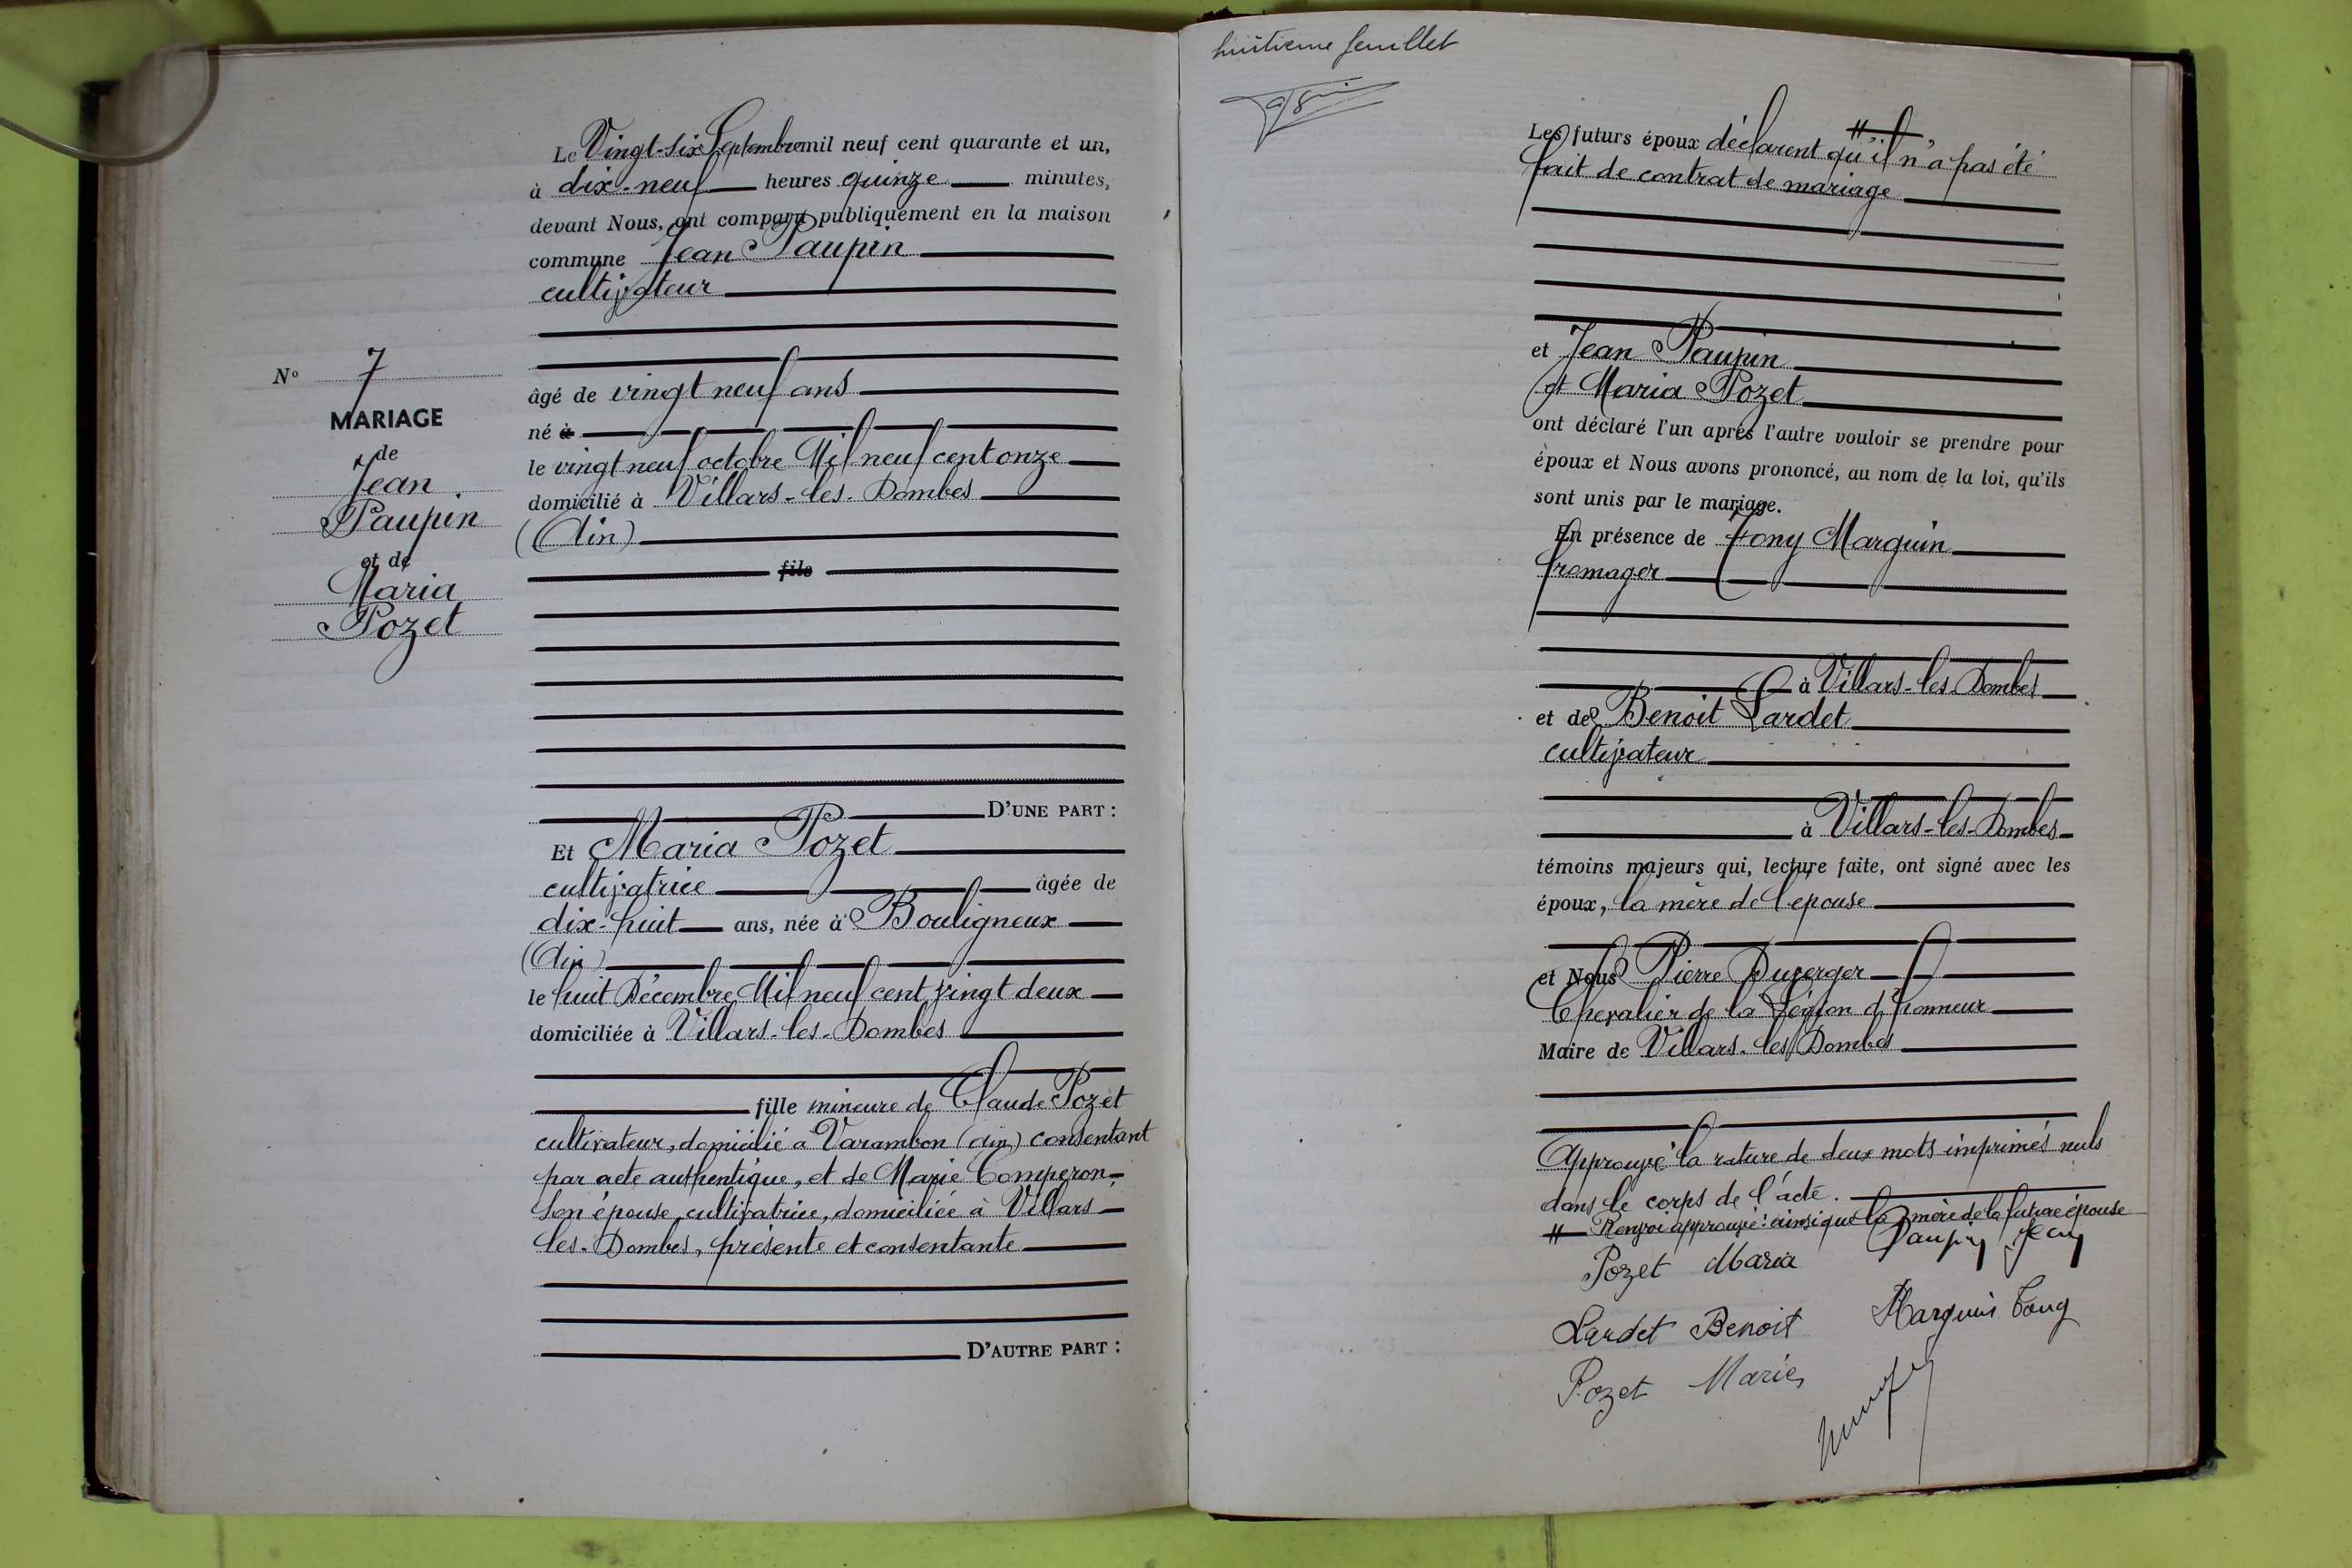 Le Vingt-six Septembre mil neuf cent quarante et un,
à dix-neuf heures quinze minutes,
devant Nous, ont comparu publiquement en la maison
commune Jean Paupin
cultivateur
âgé de vingt neuf ans
né à
le vingt neuf octobre Mil neuf cent onze
domicilié à Villars-les-Dombes
(Ain)
fils
N° 7
MARIAGE
de
Jean
Paupin
et de
Maria
Pozet
D'UNE PART :
Et Maria Pozet
cultivatrice âgée de
dix-huit ans, née à Bouligneux
(Ain)
le huit Décembre Mil neuf cent vingt deux
domiciliée à Villars-les-Dombes
fille mineure de Claude Pozet
cultivateur, domicilié à Varambon (Ain) consentant
par acte authentique, et de Marie Comperon
son épouse, cultivatrice, domiciliée à Villars-
les-Dombes, présente et consentante
D'AUTRE PART :
huitième feuillet
Les futurs époux déclarent qu'il n'a pas été
fait de contrat de mariage
et Jean Paupin
et Maria Pozet
ont déclaré l'un après l'autre vouloir se prendre pour
époux et Nous avons prononcé, au nom de la loi, qu'ils
sont unis par le mariage.
En présence de Tony Marguin
fromager
à Villars-les-Dombes
et de Benoit Lardet
cultivateur
à Villars-les-Dombes
témoins majeurs qui, lecture faite, ont signé avec les
époux, la mère de l'épouse
et Nous Pierre Duverger
Chevalier de la Légion d'honneur
Maire de Villars-les-Dombes
Approuvé la rature de deux mots imprimés nuls
dans le corps de l'acte.
# Renvoi approuvé : ainsi que la mère de la future épouse
Pozet Maria Paupin Jean
Lardet Benoit Marguin Tony
Pozet Marie